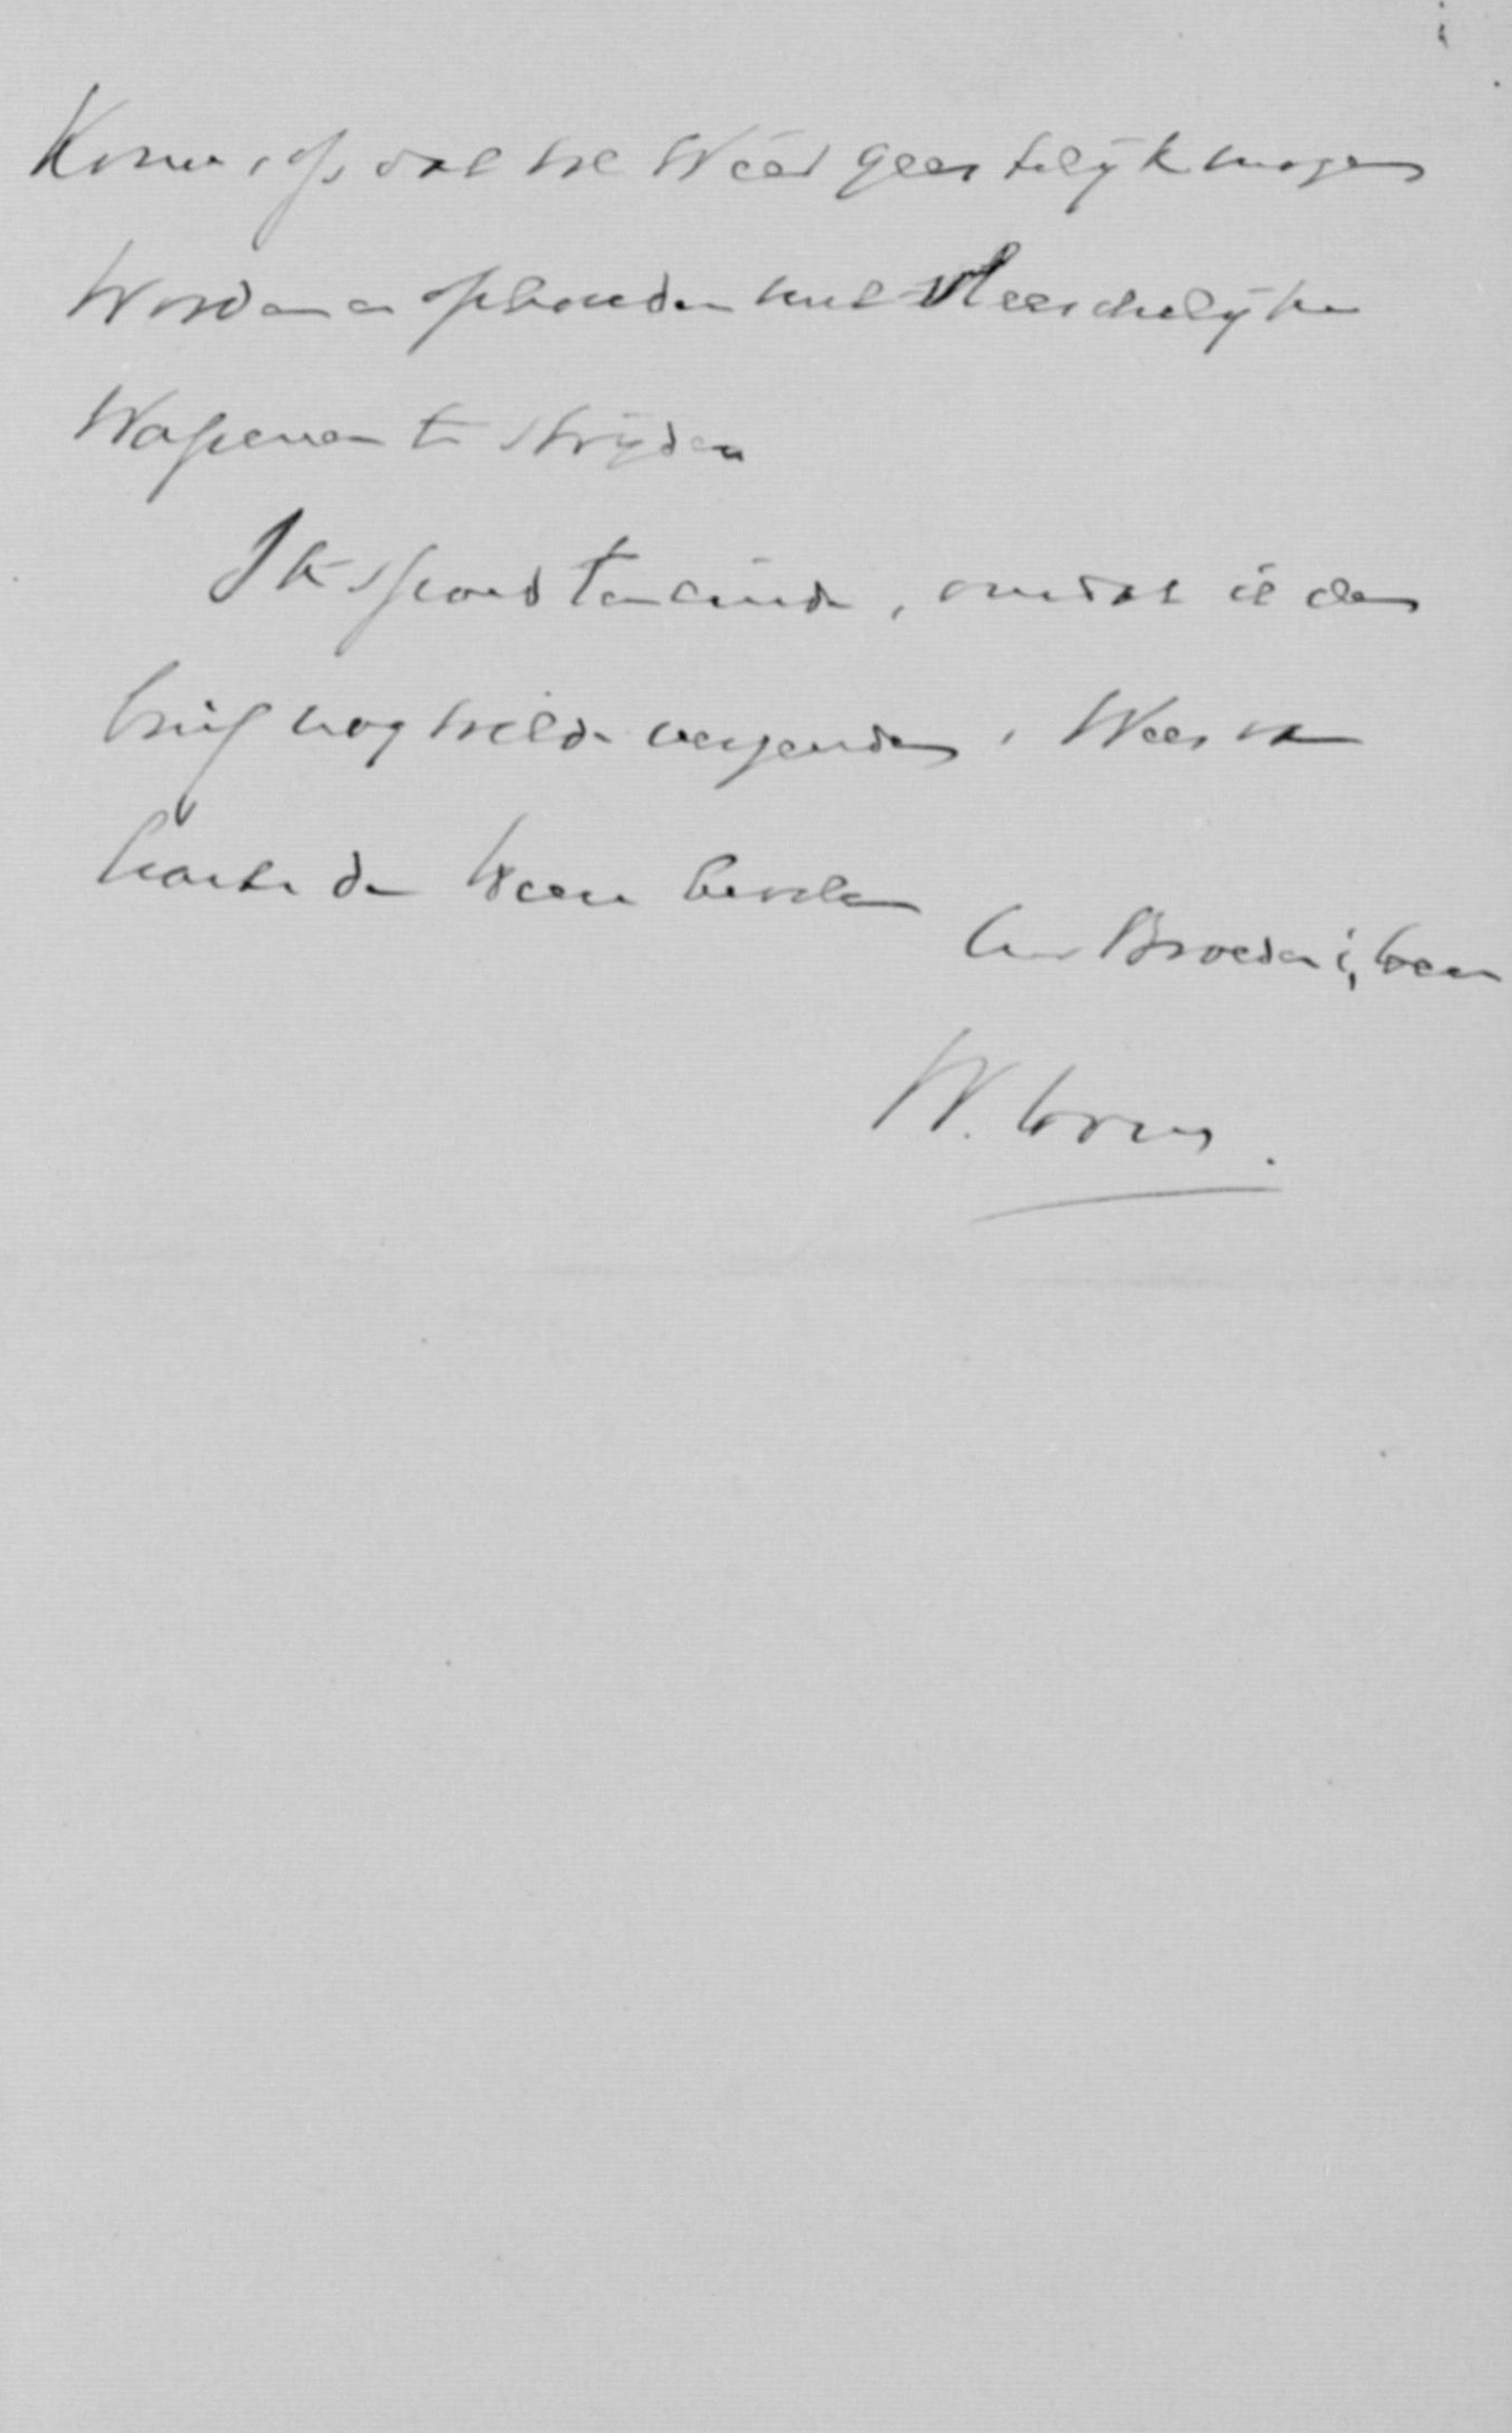 Kome, opdat we weer geestelijk mogen
worden en ophouden met vleeschelijke
wapenen te strijden
Ik spoed ten einde, omdat ik den
brief nog wilde verzenden. Wees van
harte den Heere bevolen
Uw Broeder i, Heer
W.